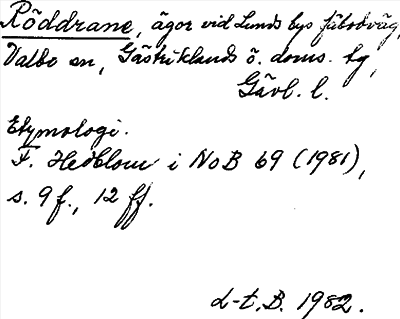 Röddrane, ägor vid Lunds bys fäbodväg,
Valbo sn, Gästriklands ö. doms. tg,
Gävl. l.
Etymologi.
F. Hedblom i NoB 69 (1981),
s. 9 f., 12 ff.
L-t. B. 1982.